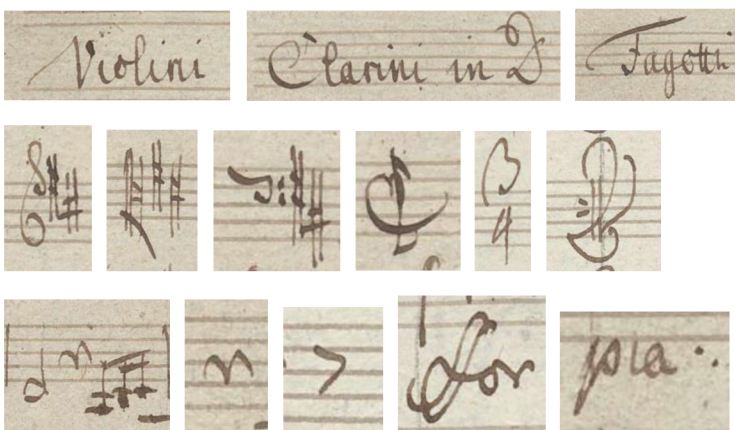 Violini Clarini in D Fagotti
3
4
for pia: